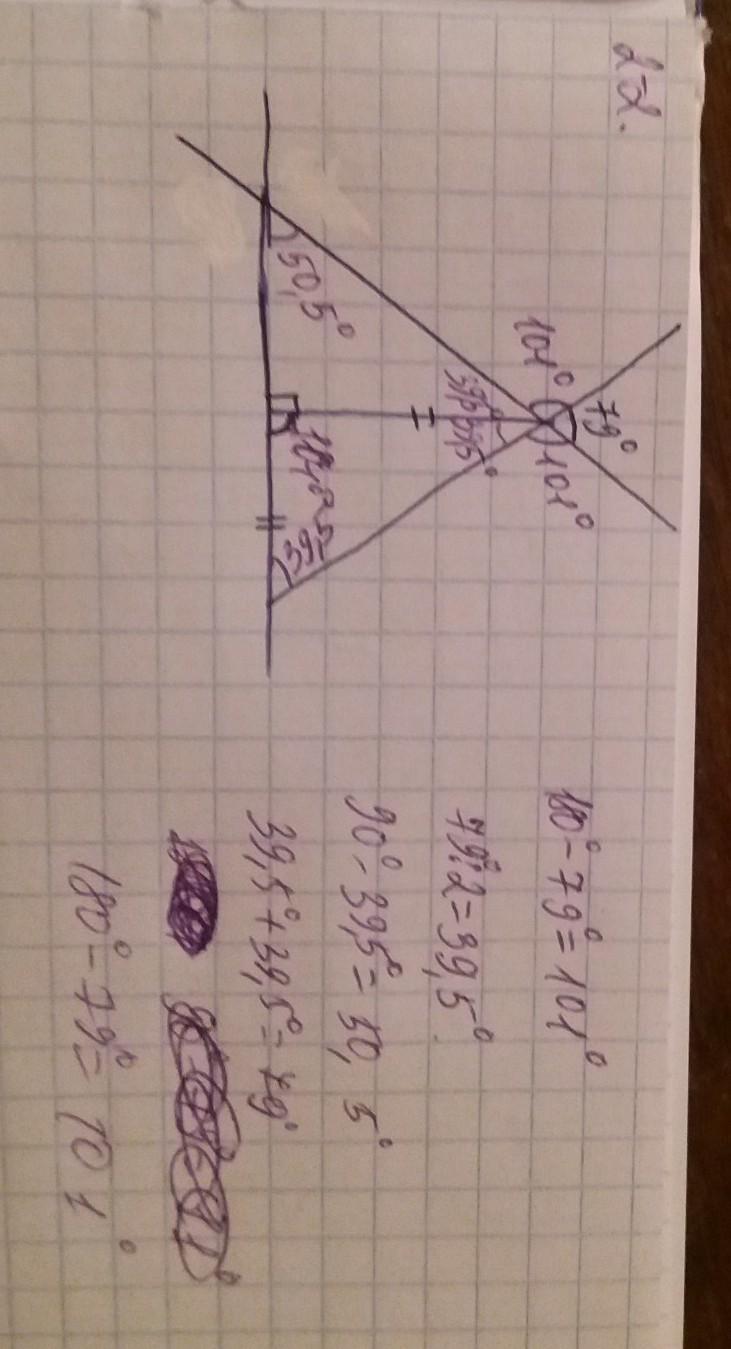 2-2.
79°
101°
101°
39,5°
39,5°
50,5°
39,5
180° - 79° = 101°
79°:2 = 39,5°
90° - 39,5° = 50,5°
39,5° + 39,5° = 79°
180° - 79° = 101°